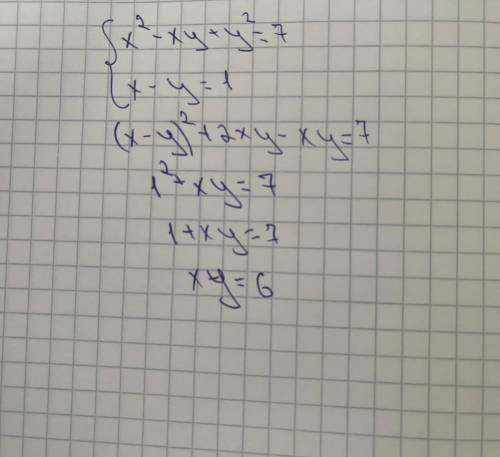 x² - xy + y² = 7
x - y = 1
(x - y)² + 2xy - xy = 7
1² + xy = 7
1 + xy = 7
xy = 6